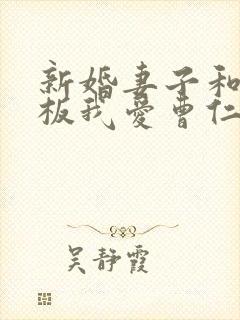 新婚妻子和
板我爱曹仁
吴静霞